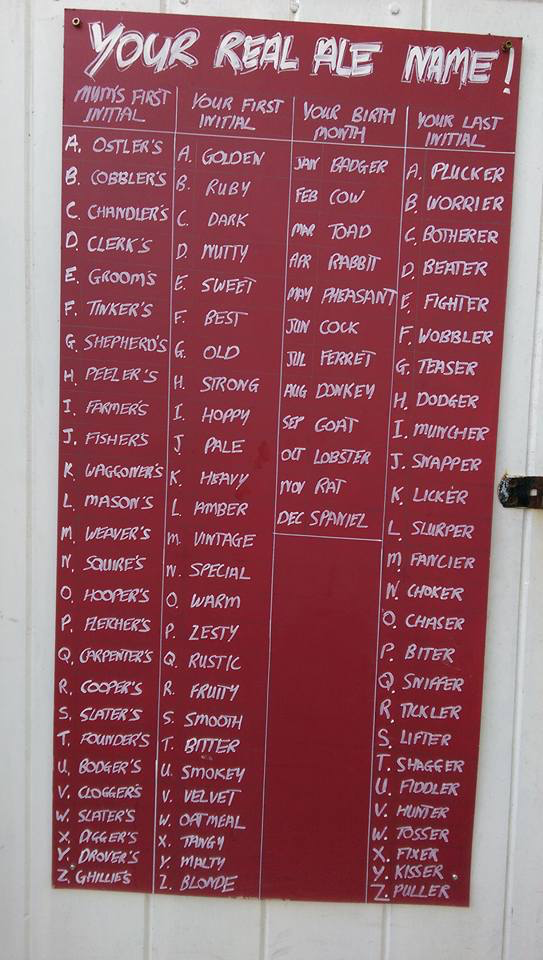 YOUR REAL ALE NAME!
MUM'S FIRST
INITIAL
A. OSTLER'S
B. COBBLER'S
C. CHANDLER'S
D. CLERK'S
E. GROOM'S
F. TINKER'S
G. SHEPHERD'S
H. PEELER'S
I. FARMER'S
J. FISHER'S
K. WAGGONER'S
L. MASON'S
M. WEAVER'S
N. SQUIRE'S
O. HOOPER'S
P. FLETCHER'S
Q. CARPENTER'S
R. COOPER'S
S. SLATER'S
T. FOUNDER'S
U. BODGER'S
V. CLOGGER'S
W. SLATER'S
X. DIGGER'S
Y. DROVER'S
Z. GHILLIE'S
YOUR FIRST
INITIAL
A. GOLDEN
B. RUBY
C. DARK
D. NUTTY
E. SWEET
F. BEST
G. OLD
H. STRONG
I. HOPPY
J. PALE
K. HEAVY
L. AMBER
M. VINTAGE
N. SPECIAL
O. WARM
P. ZESTY
Q. RUSTIC
R. FRUITY
S. SMOOTH
T. BITTER
U. SMOKEY
V. VELVET
W. OATMEAL
X. TANGY
Y. MALTY
Z. BLONDE
YOUR BIRTH
MONTH
JAN BADGER
FEB COW
MAR TOAD
APR RABBIT
MAY PHEASANT
JUN COCK
JUL FERRET
AUG DONKEY
SEP GOAT
OCT LOBSTER
NOV RAT
DEC SPANIEL
YOUR LAST
INITIAL
A. PLUCKER
B. WORRIER
C. BOTHERER
D. BEATER
E. FIGHTER
F. WOBBLER
G. TEASER
H. DODGER
I. MUNCHER
J. SNAPPER
K. LICKER
L. SLURPER
M. FANCIER
N. CHOKER
O. CHASER
P. BITER
Q. SNIFFER
R. TICKLER
S. LIFTER
T. SHAGGER
U. FIDDLER
V. HUNTER
W. TOSSER
X. FIXER
Y. KISSER
Z. PULLER